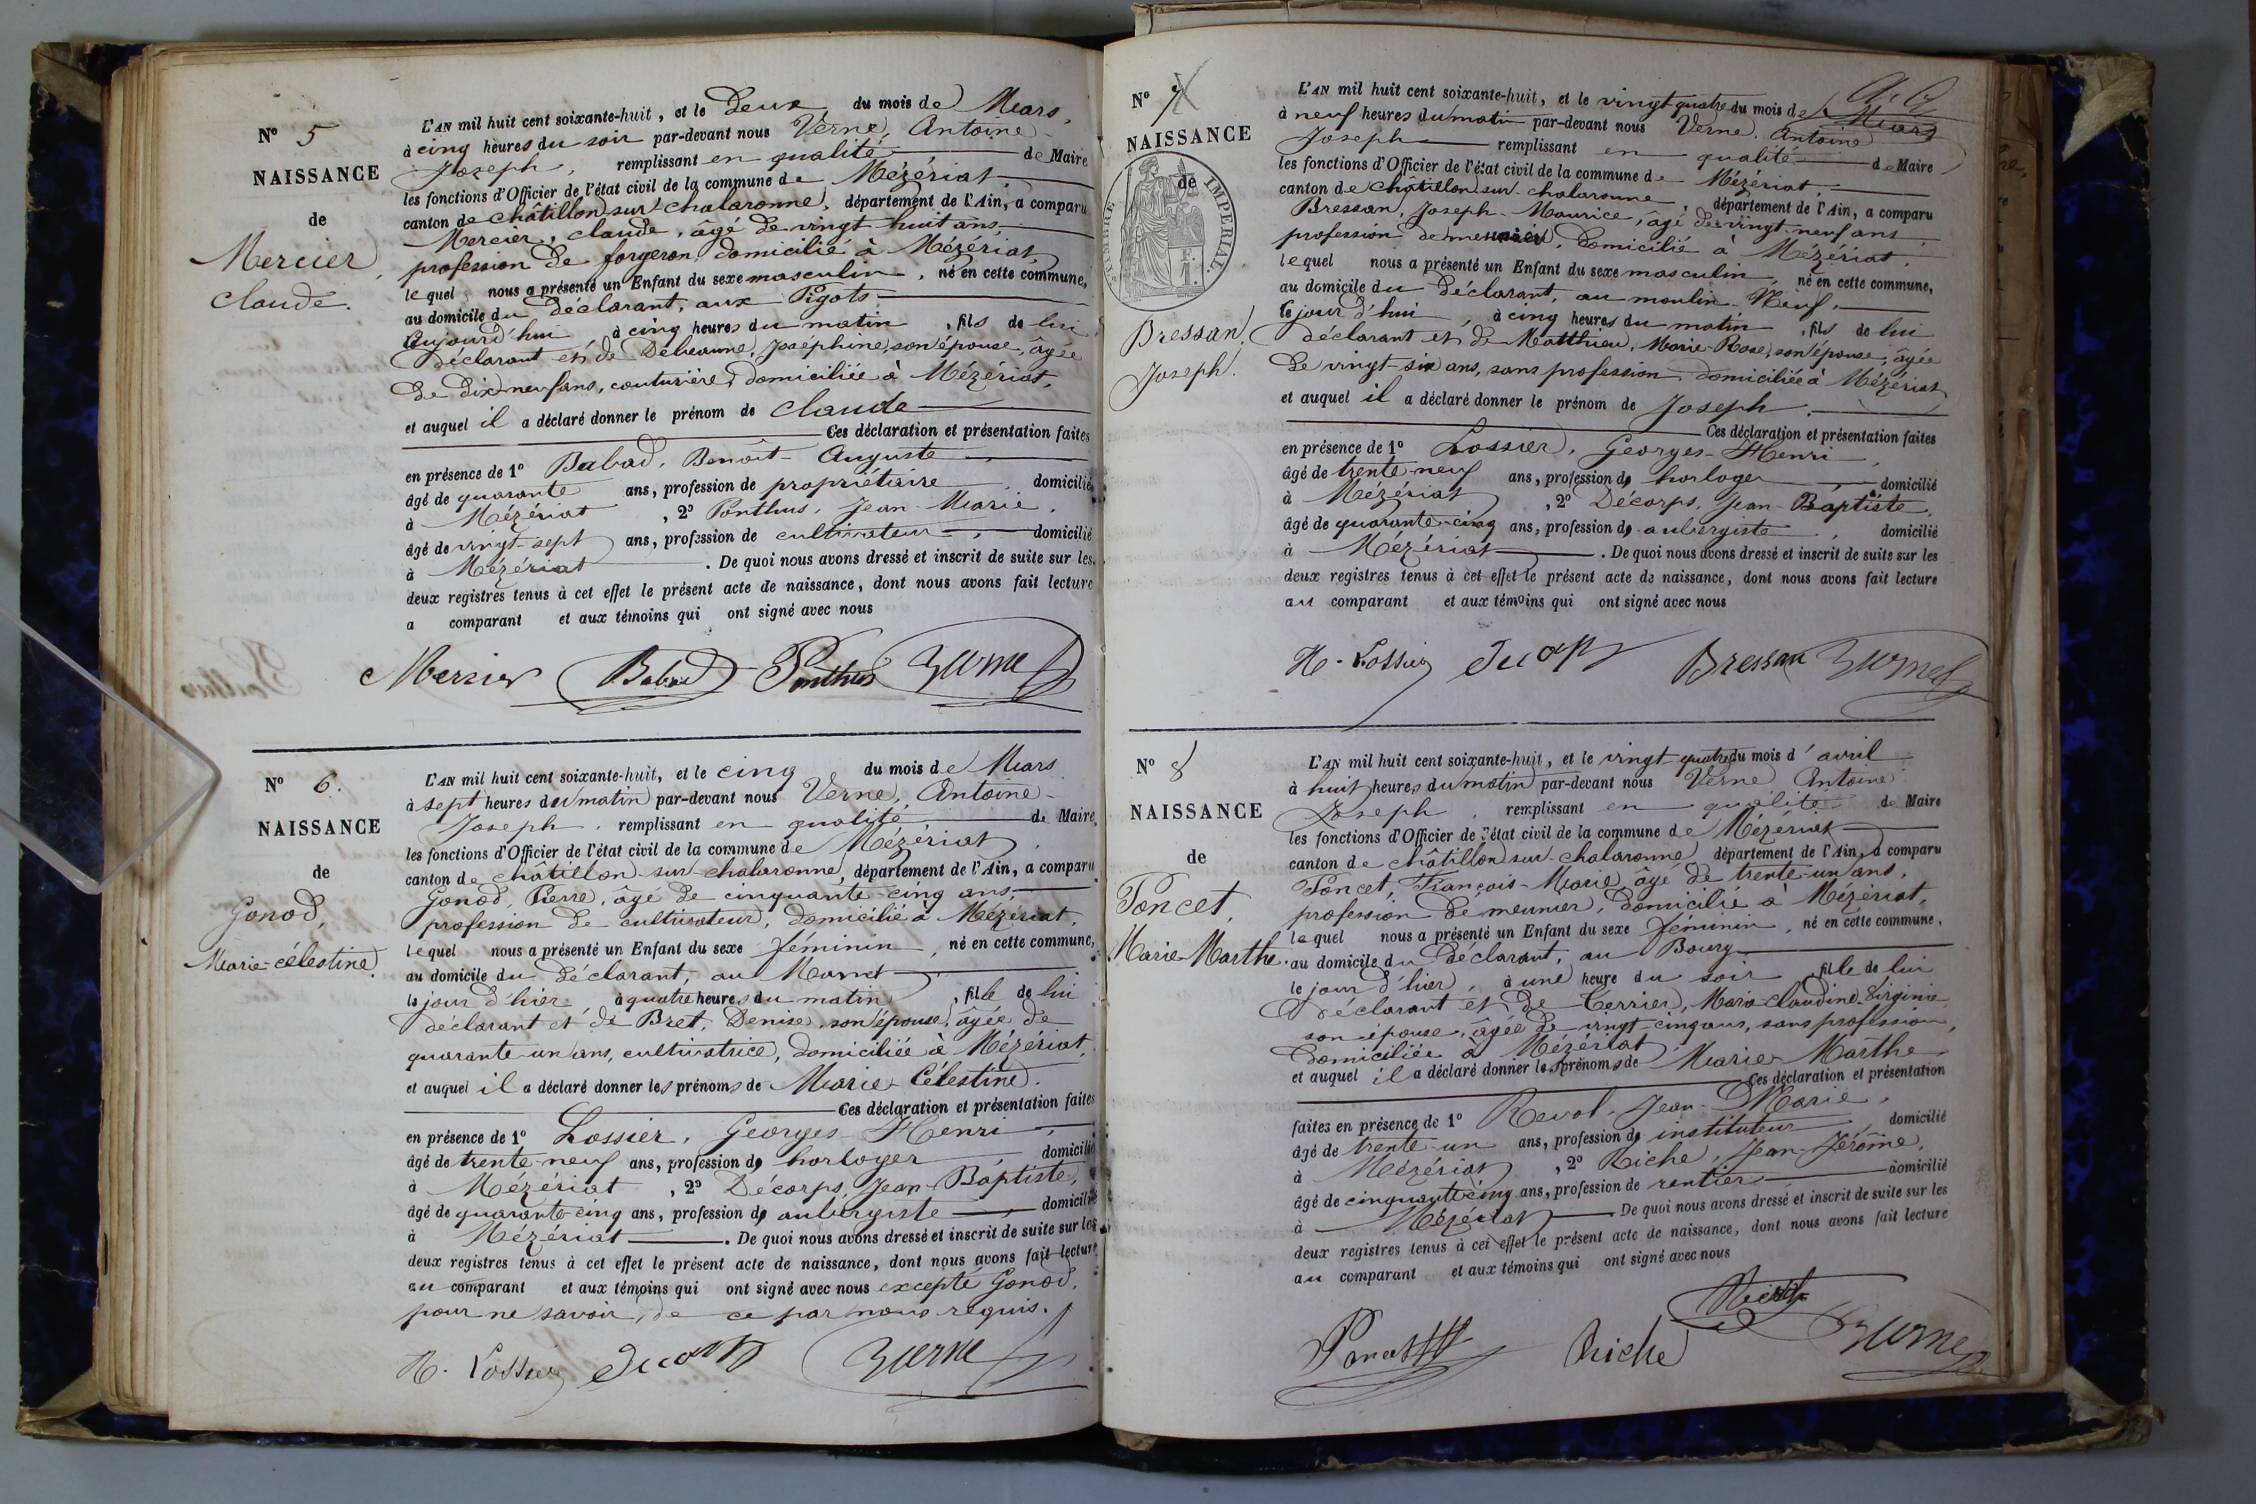 N° 5
NAISSANCE
de
Mercier,
Claude.
L'AN mil huit cent soixante-huit, et le deux du mois de Mars,
à cinq heures du soir par-devant nous Verne, Antoine
Joseph, remplissant en qualité de Maire
les fonctions d'Officier de l'état civil de la commune de Mézériat,
canton de Châtillon sur Chalaronne, département de l'Ain, a comparu
Mercier, Claude, âgé de vingt-huit ans,
profession de forgeron, domicilié à Mézériat,
lequel nous a présenté un Enfant du sexe masculin, né en cette commune,
au domicile du déclarant, aux Pigots,
aujourd'hui à cinq heures du matin, fils de lui
déclarant et de Debeaune, Joséphine, son épouse, âgée
de dix-neuf ans, couturière, domiciliée à Mézériat,
et auquel il a déclaré donner le prénom de Claude
Ces déclaration et présentation faites
en présence de 1° Babad, Benoît-Auguste
âgé de quarante ans, profession de propriétaire, domicilié
à Mézériat, 2° Ponthus, Jean-Marie,
âgé de vingt-sept ans, profession de cultivateur, domicilié
à Mézériat. De quoi nous avons dressé et inscrit de suite sur les
deux registres tenus à cet effet le présent acte de naissance, dont nous avons fait lecture
a comparant et aux témoins qui ont signé avec nous
Mercier Babad Ponthus Verne
N° 6.
NAISSANCE
de
Gonod,
Marie-Célestine.
L'AN mil huit cent soixante-huit, et le cinq du mois de Mars
à sept heures du matin par-devant nous Verne, Antoine-
Joseph, remplissant en qualité de Maire
les fonctions d'Officier de l'état civil de la commune de Mézériat,
canton de Châtillon-sur-Chalaronne, département de l'Ain, a comparu
Gonod, Pierre, âgé de cinquante-cinq ans,
profession de cultivateur, domicilié à Mézériat,
lequel nous a présenté un Enfant du sexe féminin, né en cette commune,
au domicile du déclarant, au
le jour d'hier à quatre heures du matin, fille de lui
déclarant et de Bret, Denise, son épouse, âgée de
quarante-un ans, cultivatrice, domiciliée à Mézériat,
et auquel il a déclaré donner les prénoms de Marie-Célestine.
Ces déclaration et présentation faites
en présence de 1° Lossier, Georges-Henri,
âgé de trente-neuf ans, profession d'horloger domicilié
à Mézériat, 2° Décorps, Jean-Baptiste,
âgé de quarante-cinq ans, profession d'aubergiste domicilié
à Mézériat. De quoi nous avons dressé et inscrit de suite sur les
deux registres tenus à cet effet le présent acte de naissance, dont nous avons fait lecture
au comparant et aux témoins qui ont signé avec nous excepté Gonod,
pour ne savoir, de ce par nous requis.
H. Lossier Decorps Verne
N° 7
NAISSANCE
de
TIMBRE IMPERIAL
Bressan,
Joseph.
L'AN mil huit cent soixante-huit, et le vingt-quatre du mois de Mars
à neuf heures du matin par-devant nous Verne, Antoine
Joseph remplissant en qualité de Maire
les fonctions d'Officier de l'état civil de la commune de Mézériat,
canton de Châtillon-sur-Chalaronne, département de l'Ain, a comparu
Bressan, Joseph-Maurice, âgé de vingt-neuf ans,
profession de meunier, domicilié à Mézériat,
lequel nous a présenté un Enfant du sexe masculin, né en cette commune,
au domicile du déclarant, au moulin-Neuf,
ce jour d'hui, à cinq heures du matin, fils de lui
déclarant et de Matthieu, Marie-Rose, son épouse, âgée
de vingt-six ans, sans profession, domiciliée à Mézériat
et auquel il a déclaré donner le prénom de Joseph.
Ces déclaration et présentation faites
en présence de 1° Lossier, Georges-Henri,
âgé de trente-neuf ans, profession d'horloger domicilié
à Mézériat, 2° Décorps, Jean-Baptiste,
âgé de quarante-cinq ans, profession d'aubergiste, domicilié
à Mézériat. De quoi nous avons dressé et inscrit de suite sur les
deux registres tenus à cet effet le présent acte de naissance, dont nous avons fait lecture
au comparant et aux témoins qui ont signé avec nous
H. Lossier Decorps Bressan Verne
N° 8
NAISSANCE
de
Poncet,
Marie-Marthe.
L'AN mil huit cent soixante-huit, et le vingt-quatre du mois d'avril
à huit heures du matin par-devant nous Verne, Antoine
Joseph, remplissant en qualité de Maire
les fonctions d'Officier de l'état civil de la commune de Mézériat
canton de Châtillon-sur-Chalaronne, département de l'Ain, a comparu
Poncet, François-Marie, âgé de trente-un ans,
profession de meunier, domicilié à Mézériat,
lequel nous a présenté un Enfant du sexe féminin, né en cette commune,
au domicile du déclarant, au Bourg
le jour d'hier, à une heure du soir, fille de lui
déclarant et de Terrier, Marie-Claudine-Virginie
son épouse, âgée de vingt-cinq ans, sans profession,
domiciliée à Mézériat
et auquel il a déclaré donner les prénoms de Marie-Marthe.
Ces déclaration et présentation
faites en présence de 1° Revol, Jean-Marie,
âgé de trente-un ans, profession d'instituteur domicilié
à Mézériat, 2° Riche, Jean-Jérôme,
âgé de cinquante-cinq ans, profession de rentier domicilié
à Mézériat. De quoi nous avons dressé et inscrit de suite sur les
deux registres tenus à cet effet le présent acte de naissance, dont nous avons fait lecture
au comparant et aux témoins qui ont signé avec nous
Poncet Riche Verne